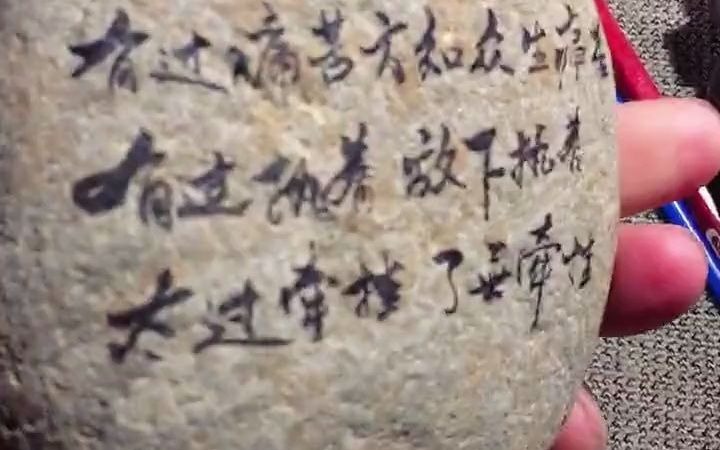 有过痛苦方知众生痛苦
有过执着放下执着
有过牵挂了无牵挂